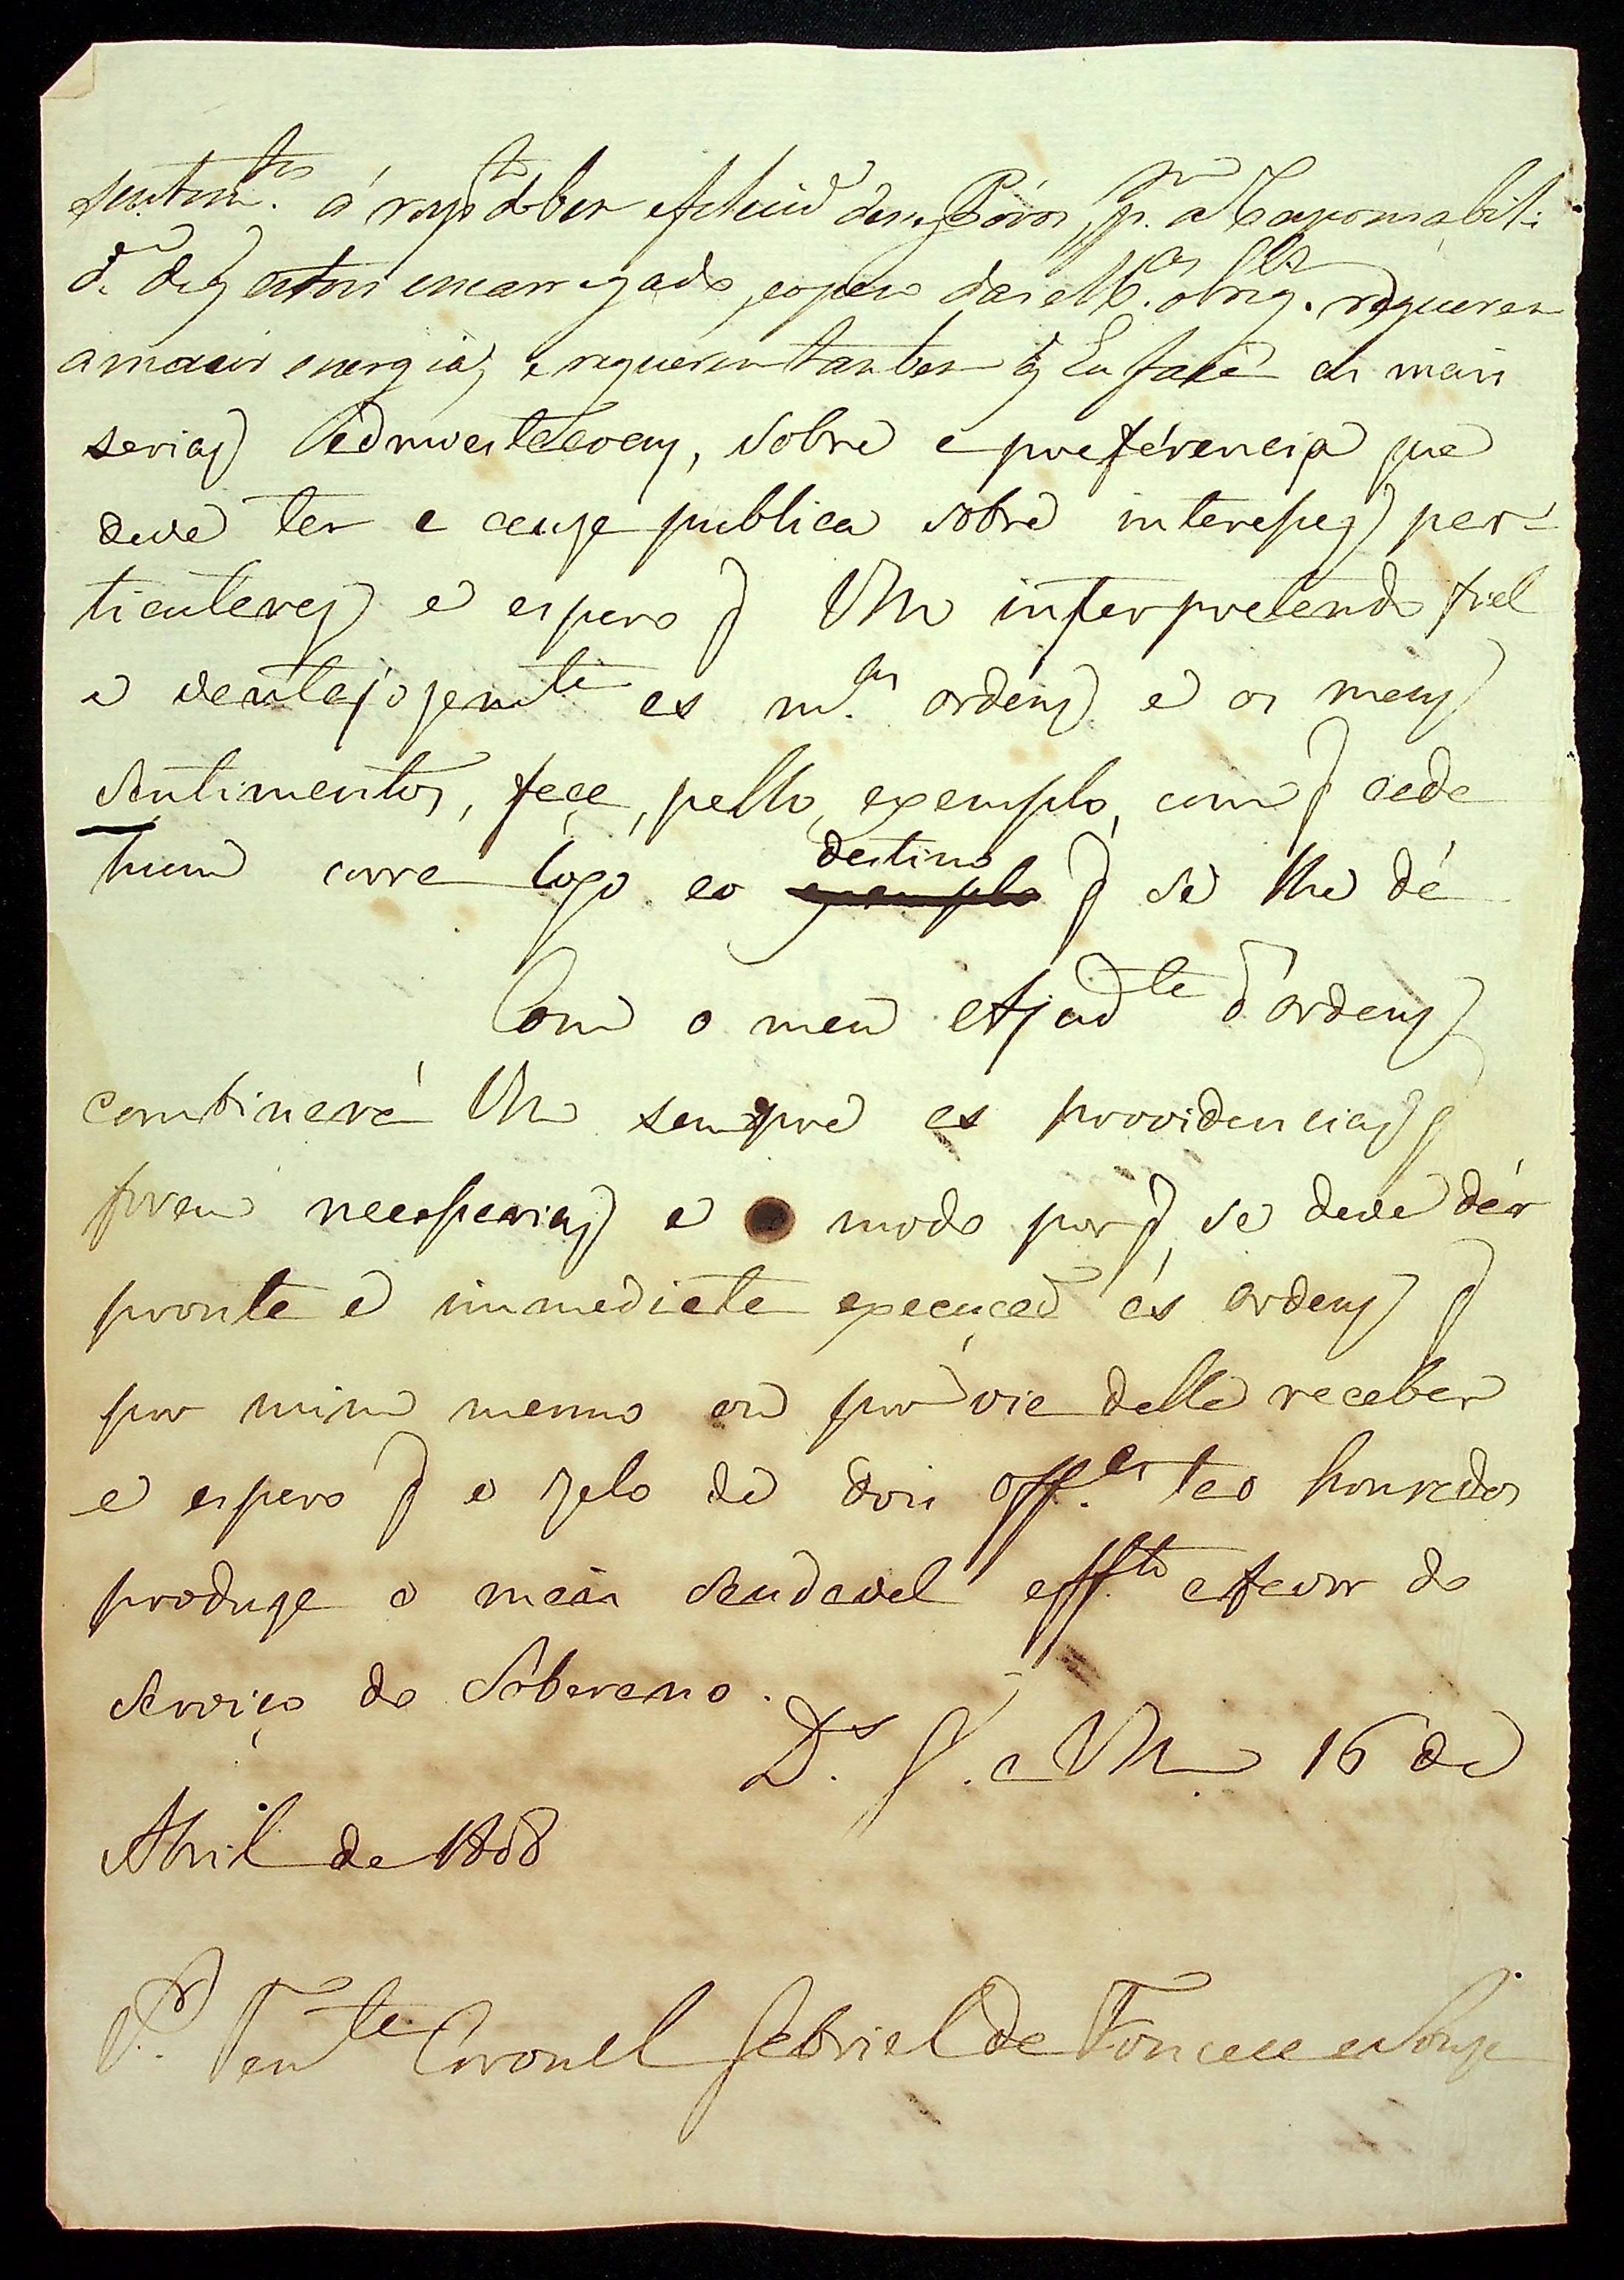 sentim.tos á resp.to do bem e felicid.e dos Póvos, p.r q. a Responsabili-
d.e de q estou encarregado, e o pezo das M.as obrig.es requerem
a maior energia, e requerem tambem q Eu faça as mais
serias Admoestaçoens, sobre a preferencia que
deve ter a cauza publica sobre interesses par-
ticulares e espero q Vm interpretando fiel
e ventajozam.te as m.as ordens e os meus
sentimentos, faça, pello exemplo, com q cada
hum corra logo ao destino q se lhe dé
Com o meu Ajud.te d'ordens
combinará Vm sempre as providencias q
forem necessarias e o modo por q se deve dár
pronta e immediata execuçaõ ás ordens q
por mim mesmo ou por via delle receber
e espero q o zelo de dois off.es tao honrados
produza o mais saudavel eff.to a favor do
Serviço do Soberano.
D.s G.e a Vm 16 de
Abril de 1808
S.r Ten.te Coronel Gabriel de Fonceca e Souza